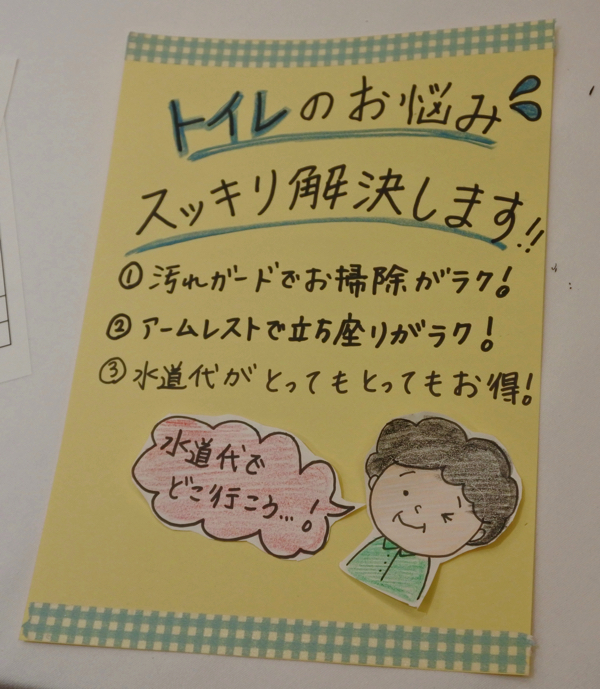 トイレのお悩み
スッキリ解決します!!
① 汚れガードでお掃除がラク!
② アームレストで立ち座りがラク!
③ 水道代がとってもとってもお得!
水道代で
どこ行こう…!